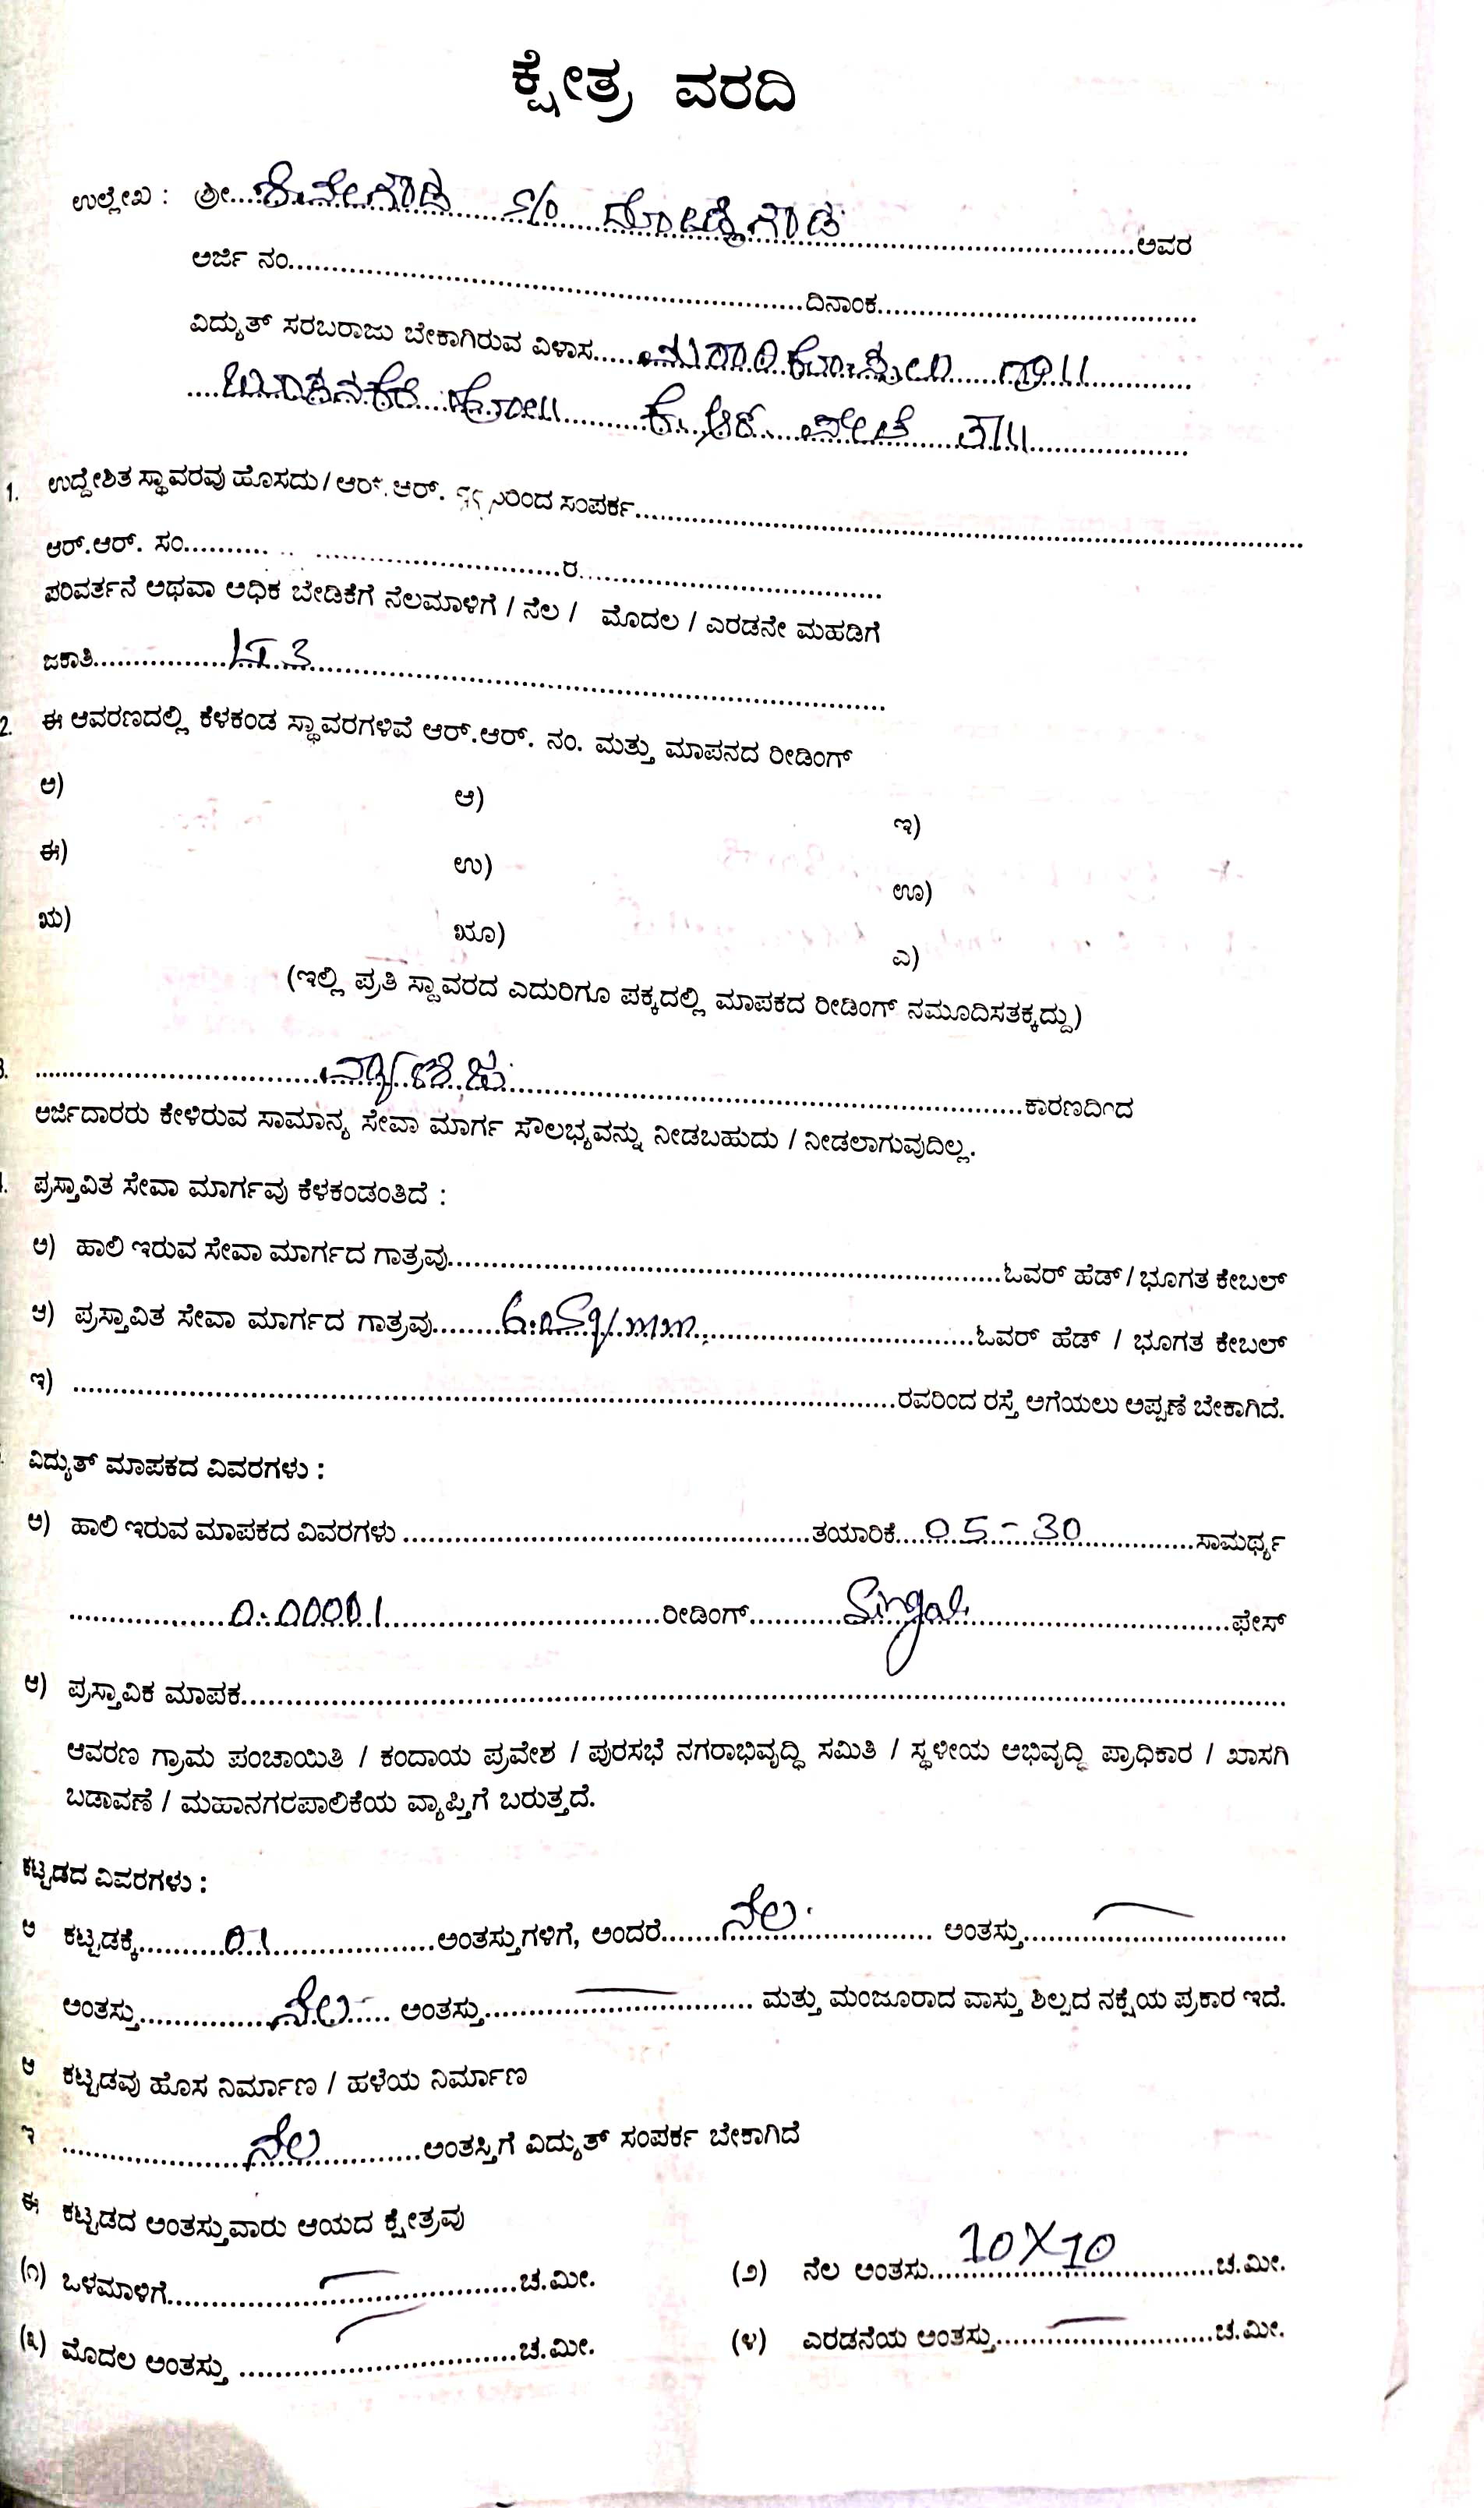 ಕ್ಷೇತ್ರ ವರದಿ
ಉಲ್ಲೇಖ : ಶ್ರೀ.... S/o .... ಅವರ
ಅರ್ಜಿ ನಂ....................ದಿನಾಂಕ....................
ವಿದ್ಯುತ್ ಸರಬರಾಜು ಬೇಕಾಗಿರುವ ವಿಳಾಸ.... ಗ್ರಾ||
ಬೂಕನಕೆರೆ ಹೋ|| ಕೆ.ಆರ್. ಪೇಟೆ ತಾ||
1. ಉದ್ದೇಶಿತ ಸ್ಥಾವರವು ಹೊಸದು / ಆರ್.ಆರ್. ಸಂಪರ್ಕ....................
ಆರ್.ಆರ್. ಸಂ....................ರ....................
ಪರಿವರ್ತನೆ ಅಥವಾ ಅಧಿಕ ಬೇಡಿಕೆಗೆ ನೆಲಮಾಳಿಗೆ / ನೆಲ / ಮೊದಲ / ಎರಡನೇ ಮಹಡಿಗೆ
ಜಕಾತಿ.......... LT 3 ....................
2. ಈ ಆವರಣದಲ್ಲಿ ಕೆಳಕಂಡ ಸ್ಥಾವರಗಳಿವೆ ಆರ್.ಆರ್. ನಂ. ಮತ್ತು ಮಾಪನದ ರೀಡಿಂಗ್
ಅ) ಆ) ಇ)
ಈ) ಉ) ಊ)
ಋ) ೠ) ಎ)
(ಇಲ್ಲಿ ಪ್ರತಿ ಸ್ಥಾವರದ ಎದುರಿಗೂ ಪಕ್ಕದಲ್ಲಿ ಮಾಪಕದ ರೀಡಿಂಗ್ ನಮೂದಿಸತಕ್ಕದ್ದು)
....................ಕಾರಣದಿಂದ
ಅರ್ಜಿದಾರರು ಕೇಳಿರುವ ಸಾಮಾನ್ಯ ಸೇವಾ ಮಾರ್ಗ ಸೌಲಭ್ಯವನ್ನು ನೀಡಬಹುದು / ನೀಡಲಾಗುವುದಿಲ್ಲ.
ಪ್ರಸ್ತಾವಿತ ಸೇವಾ ಮಾರ್ಗವು ಕೆಳಕಂಡಂತಿದೆ :
ಅ) ಹಾಲಿ ಇರುವ ಸೇವಾ ಮಾರ್ಗದ ಗಾತ್ರವು....................ಓವರ್ ಹೆಡ್ / ಭೂಗತ ಕೇಬಲ್
ಆ) ಪ್ರಸ್ತಾವಿತ ಸೇವಾ ಮಾರ್ಗದ ಗಾತ್ರವು........ 6.0Sq/mm ..........ಓವರ್ ಹೆಡ್ / ಭೂಗತ ಕೇಬಲ್
ಇ) ....................ರವರಿಂದ ರಸ್ತೆ ಅಗೆಯಲು ಅಪ್ಪಣೆ ಬೇಕಾಗಿದೆ.
ವಿದ್ಯುತ್ ಮಾಪಕದ ವಿವರಗಳು :
ಅ) ಹಾಲಿ ಇರುವ ಮಾಪಕದ ವಿವರಗಳು ....................ತಯಾರಿಕೆ.... 05-30 ..........ಸಾಮರ್ಥ್ಯ
.......... 0.00001 ..........ರೀಡಿಂಗ್.......... Singal ..........ಫೇಸ್
ಆ) ಪ್ರಸ್ತಾವಿಕ ಮಾಪಕ....................
ಆವರಣ ಗ್ರಾಮ ಪಂಚಾಯಿತಿ / ಕಂದಾಯ ಪ್ರವೇಶ / ಪುರಸಭೆ ನಗರಾಭಿವೃದ್ಧಿ ಸಮಿತಿ / ಸ್ಥಳೀಯ ಅಭಿವೃದ್ಧಿ ಪ್ರಾಧಿಕಾರ / ಖಾಸಗಿ
ಬಡಾವಣೆ / ಮಹಾನಗರಪಾಲಿಕೆಯ ವ್ಯಾಪ್ತಿಗೆ ಬರುತ್ತದೆ.
ಕಟ್ಟಡದ ವಿವರಗಳು :
ಅ ಕಟ್ಟಡಕ್ಕೆ.......... 01 ..........ಅಂತಸ್ತುಗಳಿಗೆ, ಅಂದರೆ....... ನೆಲ .......... ಅಂತಸ್ತು....................
ಅಂತಸ್ತು.......... ನೆಲ .... ಅಂತಸ್ತು.................... ಮತ್ತು ಮಂಜೂರಾದ ವಾಸ್ತು ಶಿಲ್ಪದ ನಕ್ಷೆಯ ಪ್ರಕಾರ ಇದೆ.
ಆ ಕಟ್ಟಡವು ಹೊಸ ನಿರ್ಮಾಣ / ಹಳೆಯ ನಿರ್ಮಾಣ
ಇ .......... ನೆಲ ..........ಅಂತಸ್ತಿಗೆ ವಿದ್ಯುತ್ ಸಂಪರ್ಕ ಬೇಕಾಗಿದೆ
ಈ ಕಟ್ಟಡದ ಅಂತಸ್ತುವಾರು ಆಯದ ಕ್ಷೇತ್ರವು
(೧) ಒಳಮಾಳಿಗೆ....................ಚ.ಮೀ. (೨) ನೆಲ ಅಂತಸು.... 10X10 ..........ಚ.ಮೀ.
(೩) ಮೊದಲ ಅಂತಸ್ತು ....................ಚ.ಮೀ. (೪) ಎರಡನೆಯ ಅಂತಸ್ತು....................ಚ.ಮೀ.